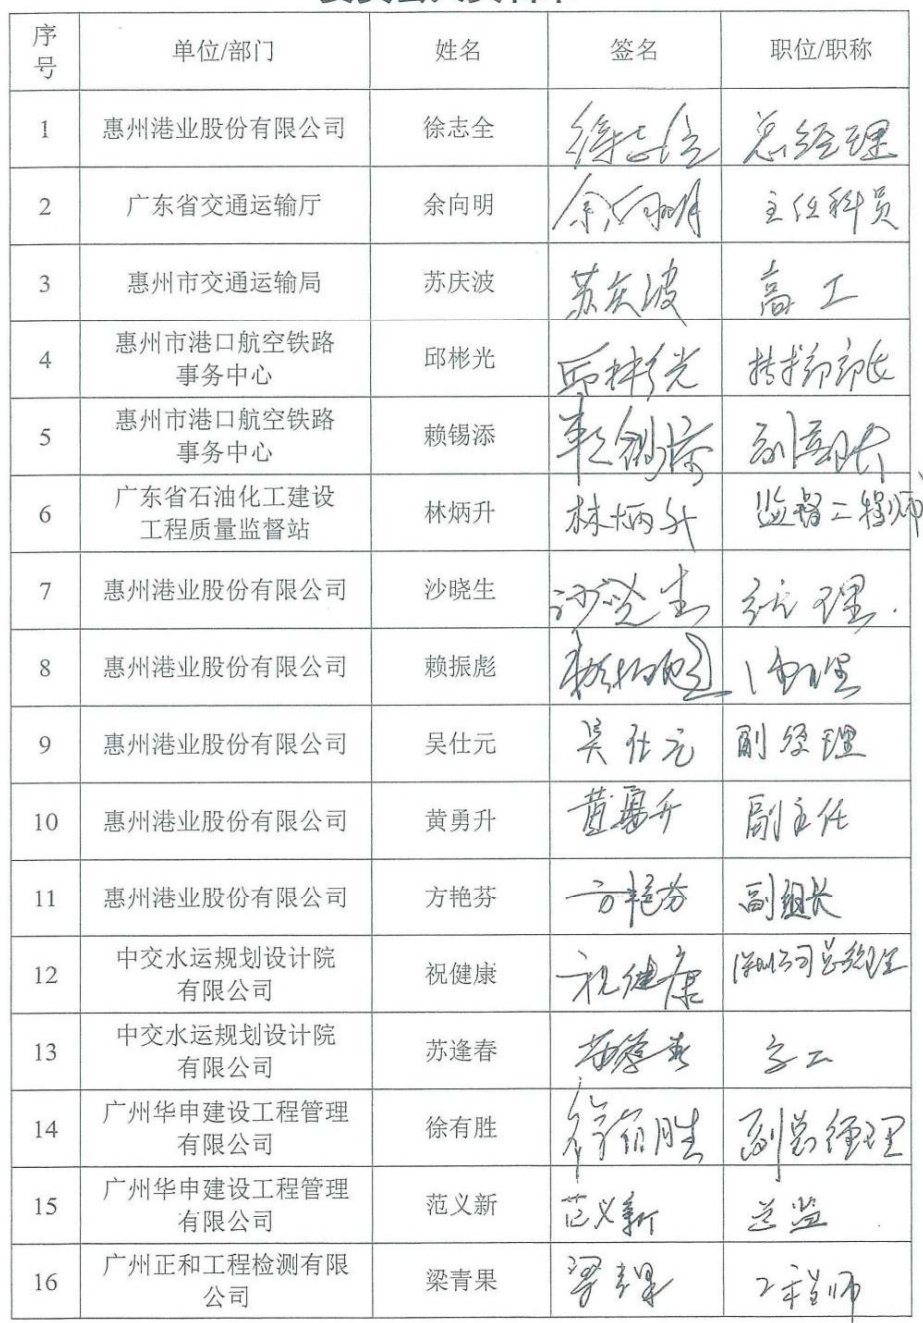 序号 单位/部门 姓名 签名 职位/职称
1 惠州港业股份有限公司 徐志全 徐志全 总经理
2 广东省交通运输厅 余向明 余向明 主任科员
3 惠州市交通运输局 苏庆波 苏庆波 高工
惠州市港口航空铁路
4 事务中心 邱彬光 邱彬光 技术部部长
惠州市港口航空铁路
5 事务中心 赖锡添 副部长
广东省石油化工建设
6 工程质量监督站 林炳升 林炳升 监督工程师
7 惠州港业股份有限公司 沙晓生 沙晓生 总经理
8 惠州港业股份有限公司 赖振彪 赖振彪
9 惠州港业股份有限公司 吴仕元 吴仕元 副经理
10 惠州港业股份有限公司 黄勇升 黄勇升 副主任
11 惠州港业股份有限公司 方艳芬 方艳芬 副组长
中交水运规划设计院
12 有限公司 祝健康 祝健康 深圳公司总经理
中交水运规划设计院
13 有限公司 苏逢春 苏逢春 高工
广州华申建设工程管理
14 有限公司 徐有胜 徐有胜 副总经理
广州华申建设工程管理
15 有限公司 范义新 范义新 总监
广州正和工程检测有限
16 公司 梁青果 梁青果 工程师